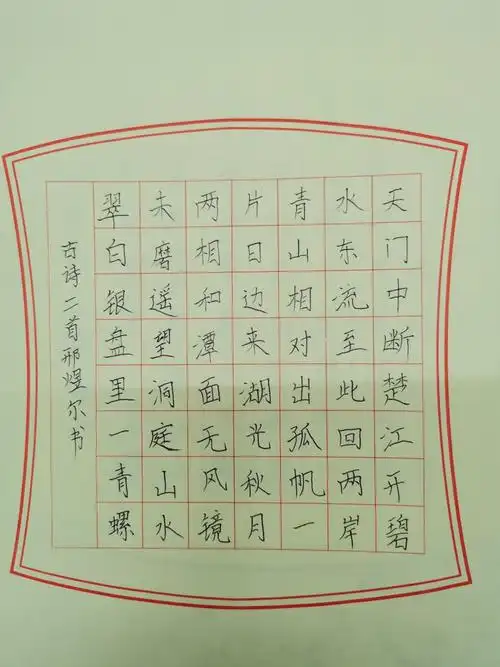 天门中断楚江开碧
水东流至此回两岸
青山相对出孤帆一
片日边来湖光秋月
两相和潭面无风镜
未磨遥望洞庭山水
翠白银盘里一青螺
古诗二首邢煜尔书